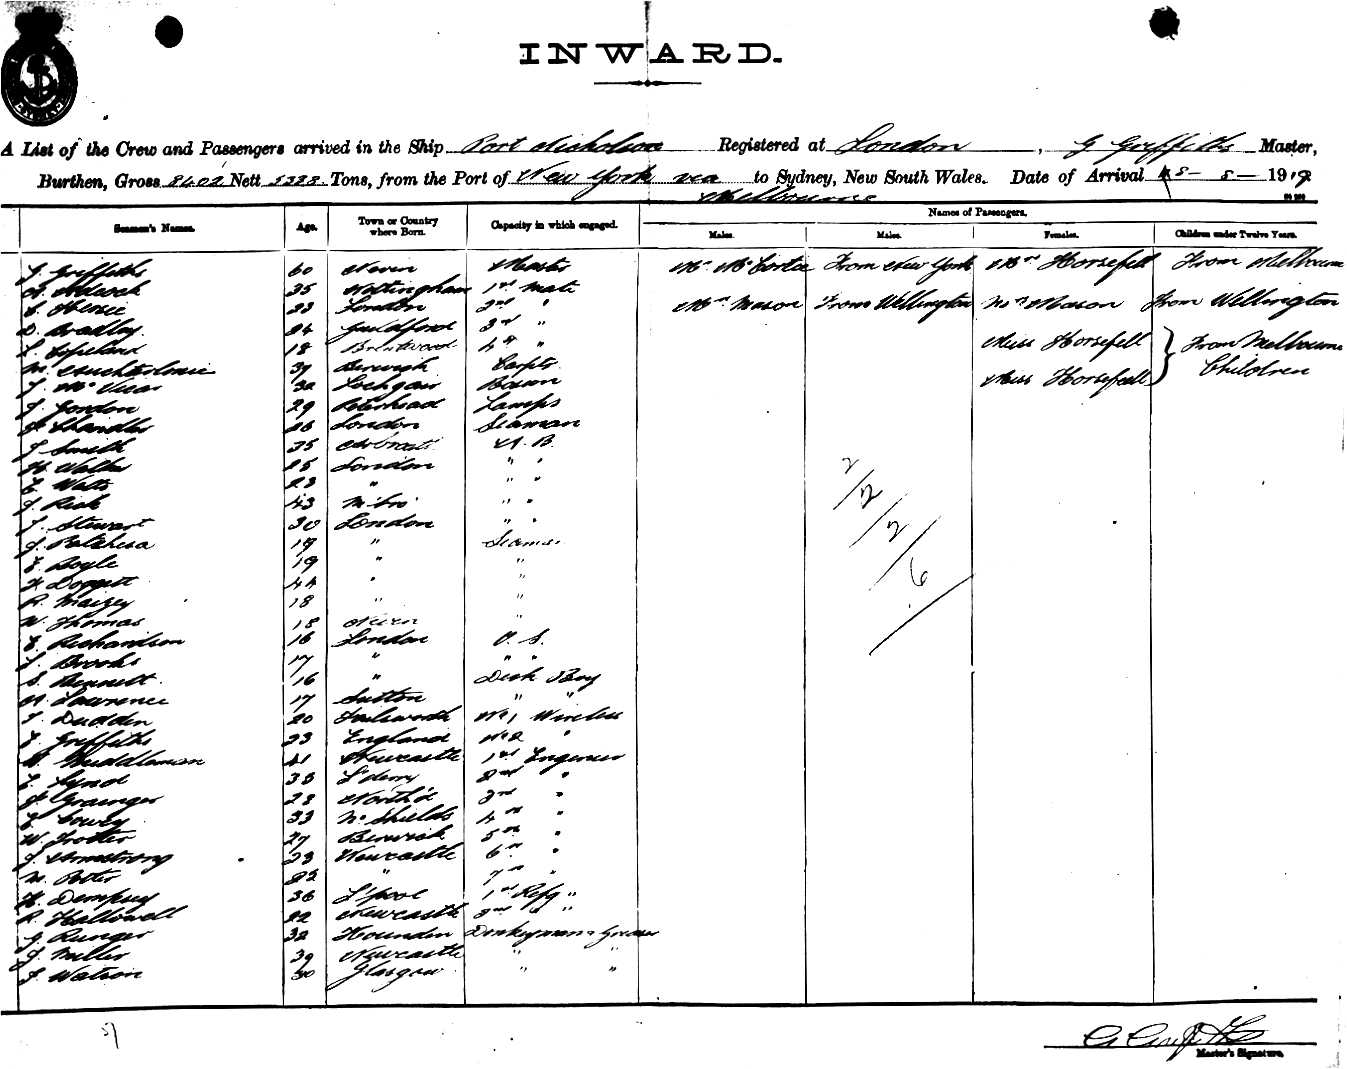 INWARD.
A List of the Crew and Passengers arrived in the Ship Port Nicholson Registered at London , G Griffiths Master,
Burthen, Gross 8402 Nett 5388 Tons, from the Port of New York via Melbourne to Sydney, New South Wales. Date of Arrival 8 - 8 - 1919
Seamen's Names. Age. Town or Country where Born. Capacity in which engaged. Names of Passengers.
Males. Males. Females. Children under Twelve Years.
Griffiths 60 Nevin Master Mr McCortie From New York Mrs Horsefell From Melbourne
35 Nottingham 1st Mate
33 London 2nd " Mr Mason From Wellington Mrs Mason From Wellington
D. Bradley 24 Guildford 3rd "
L. Copeland 18 Brentwood 4th " Miss Horsefell From Melbourne
M. 37 Berwick Carptr Miss Horsefell Children
J. McVicar 32 Lochgair Bosun
J. Gordon 29 Peterhead Lamps
Chandler 26 London Seaman
J. Smith 35 A.B.
H. Walker 25 London " "
E. Watts 23 " " "
J. Rick 43 " "
J. Stewart 30 London " "
J. 19 " Seaman
E. Boyle 19 " "
F. Doggett 44 " "
R. Maizey 18 " "
W. Thomas 18 Nevin "
E. Richardson 16 London O. S.
J. Brooks 17 " " "
S. Bennett 16 " Deck Boy
A. Lawrence 17 Sutton " "
J. Dudden 20 Isleworth No 1 Wireless
E. Griffiths 23 England No 2 "
Muddleman 41 Newcastle 1st Engineer
E. Lynd 35 L'derry 2nd "
Grainger 28 North'd 3rd "
E. Cowey 33 No Shields 4th "
W. Trotter 27 Berwick 5th "
J. Armstrong 23 Newcastle 6th "
M. Potter 22 " 7th "
H. Dempsey 36 L'pool 1st Refg "
R. Hallowell 22 Newcastle 2nd " "
J. Runger 32 Hounden Donkeyman & Greaser
J. Miller 39 Newcastle " "
J. Watson 30 Glasgow " "
2/2/2/6
G Griffiths
Master's Signature.